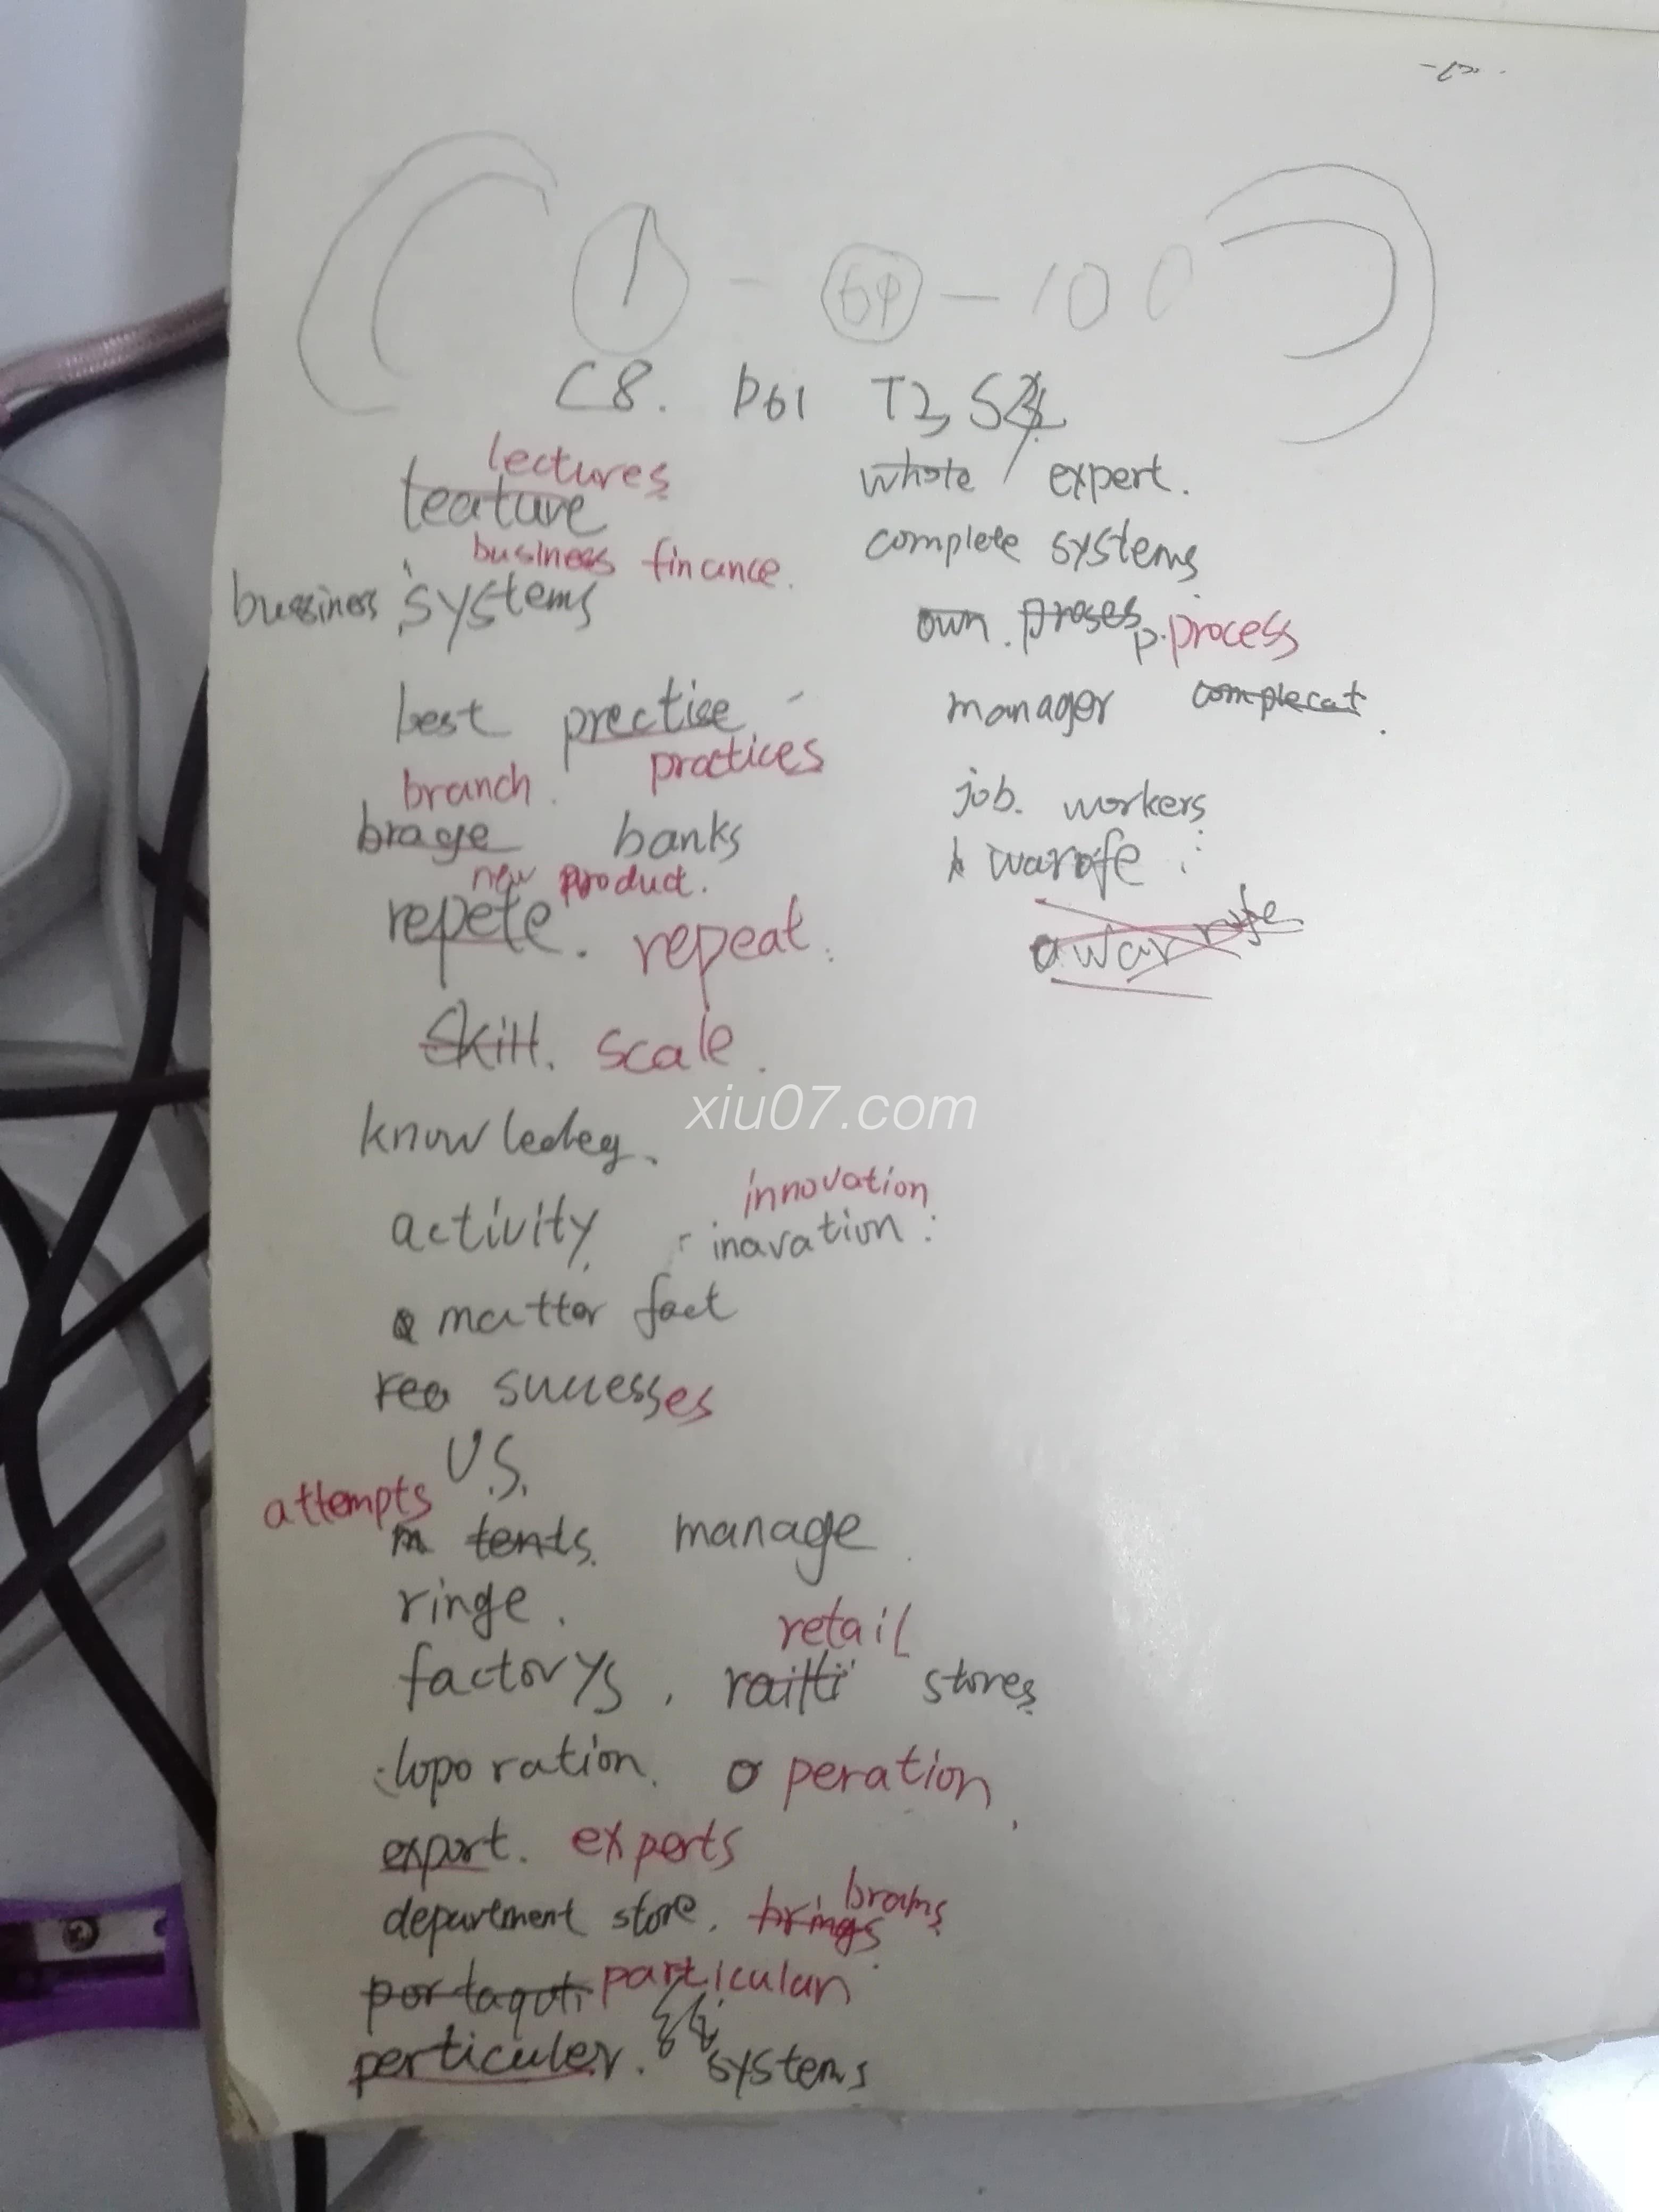 1 - 59 - 100
C8. P61 T2, S4
lectures
teature
whole / expert.
business finance.
complete systems
bussiness systems
own. proses p. process
best prectise
manager complecat.
branch. practices
job. workers
brage banks
warofe
new product.
repete. repeat.
awar rofe
skill. scale.
xiu07.com
knowledeg.
innovation
activity. inavation
a matter fact
rea successes
U.S.
attempts
m tents. manage
ringe.
retail
factorys, raitti stores
loporation. operation.
export. experts
brains
department store. brings
portaquti particular
perticuler. systems